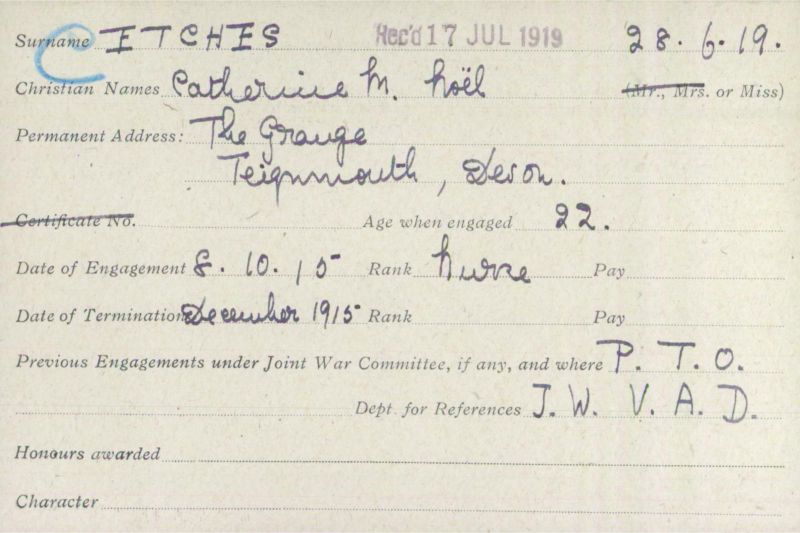 Surname ETCHES Rec'd 17 JUL 1919 28. 6. 19.
Christian Names Catherine M. Noël (Mr., Mrs. or Miss)
Permanent Address: The Grange
Teignmouth, Devon.
Certificate No. Age when engaged 22.
Date of Engagement 8. 10. 15 Rank Nurse Pay
Date of Termination December 1915 Rank Pay
Previous Engagements under Joint War Committee, if any, and where P. T. O.
Dept. for References J. W. V. A. D.
Honours awarded
Character